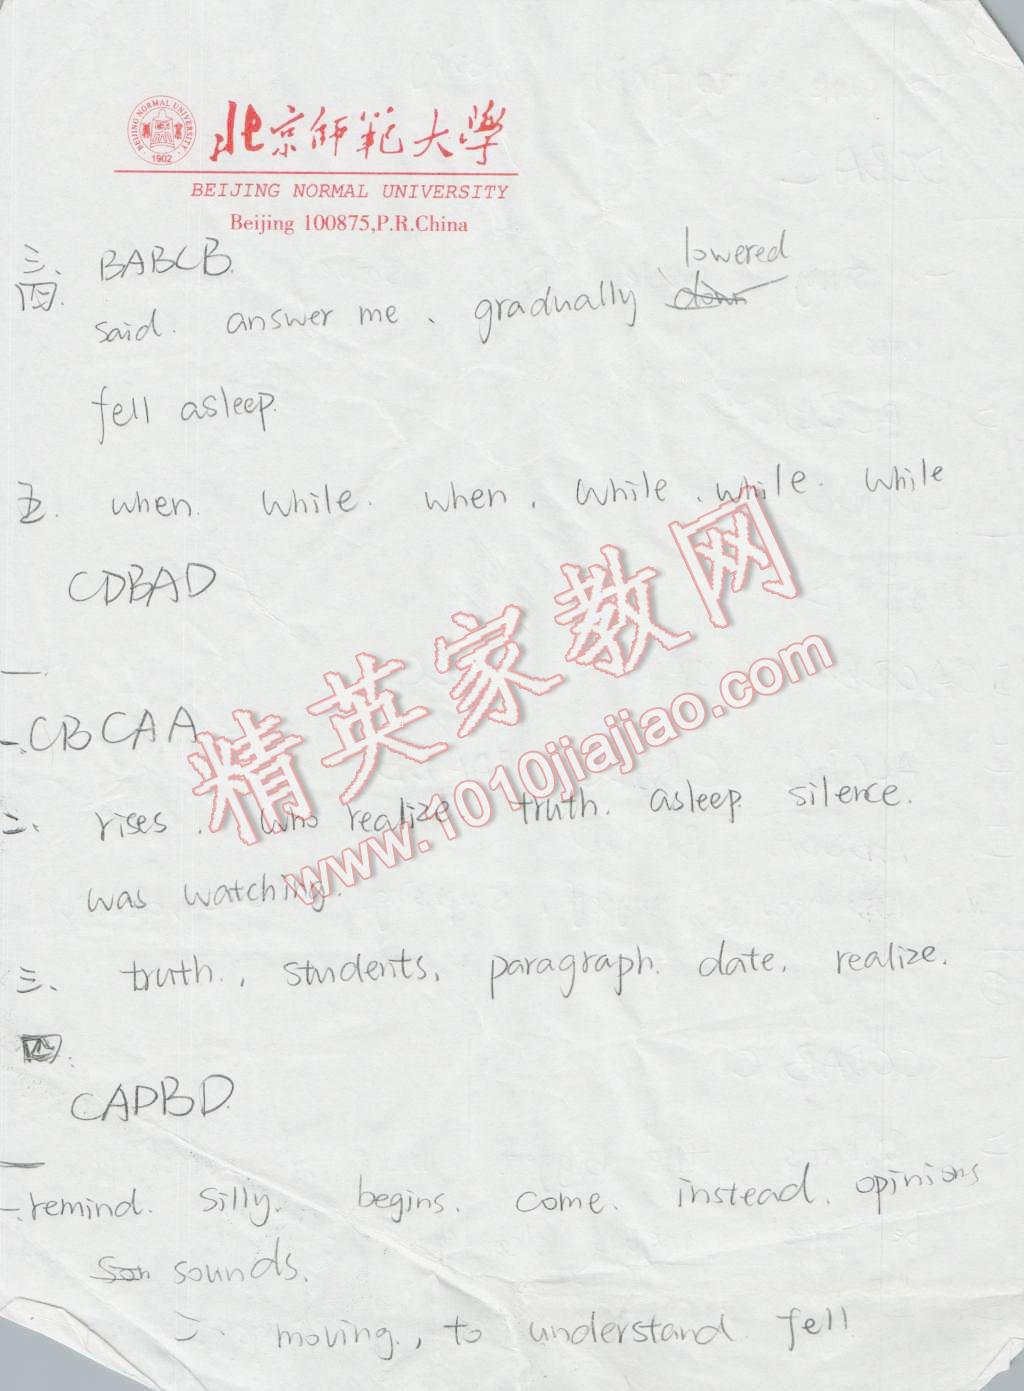 BEIJING NORMAL UNIVERSITY
1902
北京师範大学
BEIJING NORMAL UNIVERSITY
Beijing 100875,P.R.China
三、 BABCB.
四. said. answer me、 gradually down lowered
fell asleep.
五. when. while. when. while、while. while
CDBAD
一.CBCAA
二、 rises. who realize truth. asleep silence.
was watching.
三、 truth., students, paragraph. date. realize.
四.
CADBD.
一.remind. silly. begins. come. instead. opinions
son sounds.
二、 moving., to understand fell
精英家教网
www.1010jiajiao.com